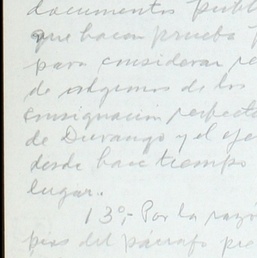 documentos públ
que hacen prueba p
para considerar re
de orígenes de los
consignación perfecta
de Durango y el eje
desde hace tiempo
lugar.
13º.- Por la razó
pies del párrafo pre